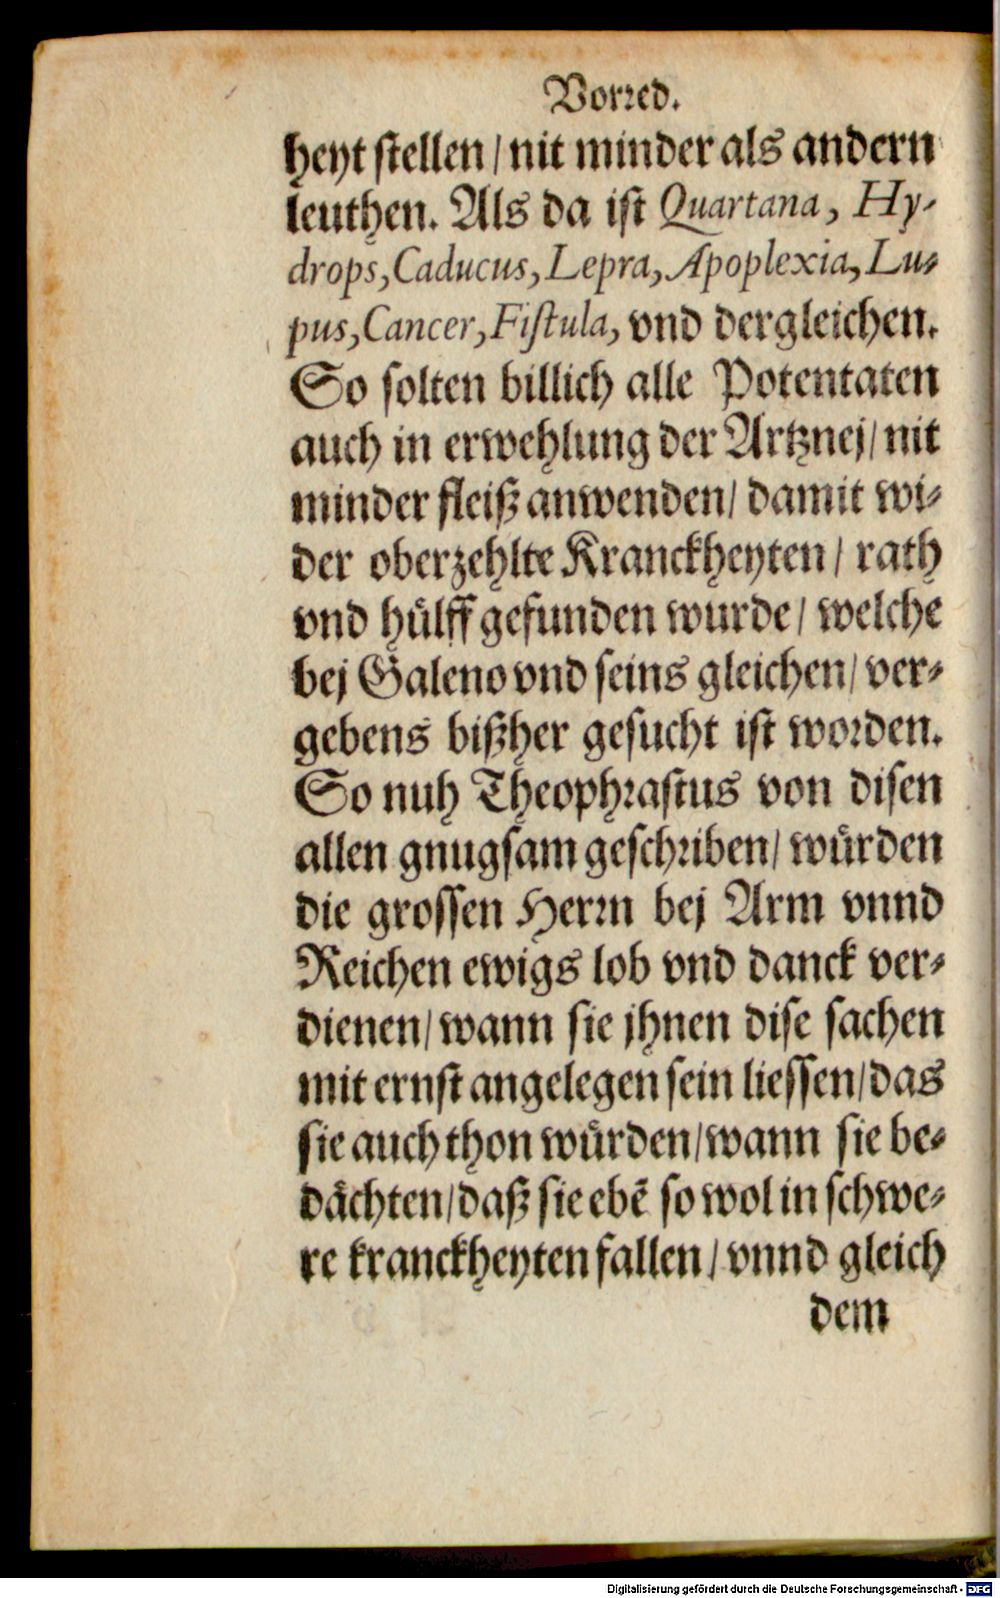 Vorred.
heyt stellen / nit minder als andern
leuthen. Als da ist Quartana, Hy-
drops, Caducus, Lepra, Apoplexia, Lu-
pus, Cancer, Fistula, vnd dergleichen.
So solten billich alle Potentaten
auch in erwehlung der Artznej / nit
minder fleiß anwenden / damit wi-
der oberzehlte Kranckheyten / rath
vnd hülff gefunden wurde / welche
bej Galeno vnd seins gleichen / ver-
gebens bißher gesucht ist worden.
So nuh Theophrastus von disen
allen gnugsam geschriben / würden
die grossen Herrn bej Arm vnnd
Reichen ewigs lob vnd danck ver-
dienen / wann sie jhnen dise sachen
mit ernst angelegen sein liessen / das
sie auch thon würden / wann sie be-
dächten / daß sie ebẽ so wol in schwe-
re kranckheyten fallen / vnnd gleich
dem
Digitalisierung gefördert durch die Deutsche Forschungsgemeinschaft - DFG